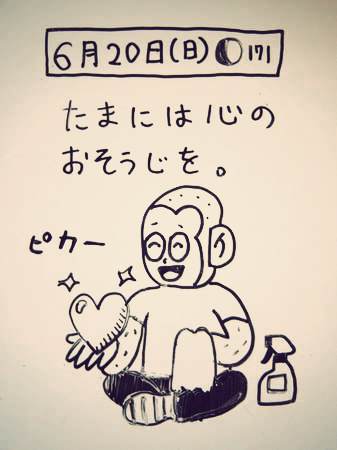 6月20日(日) 171
たまには心の
おそうじを。
ピカー